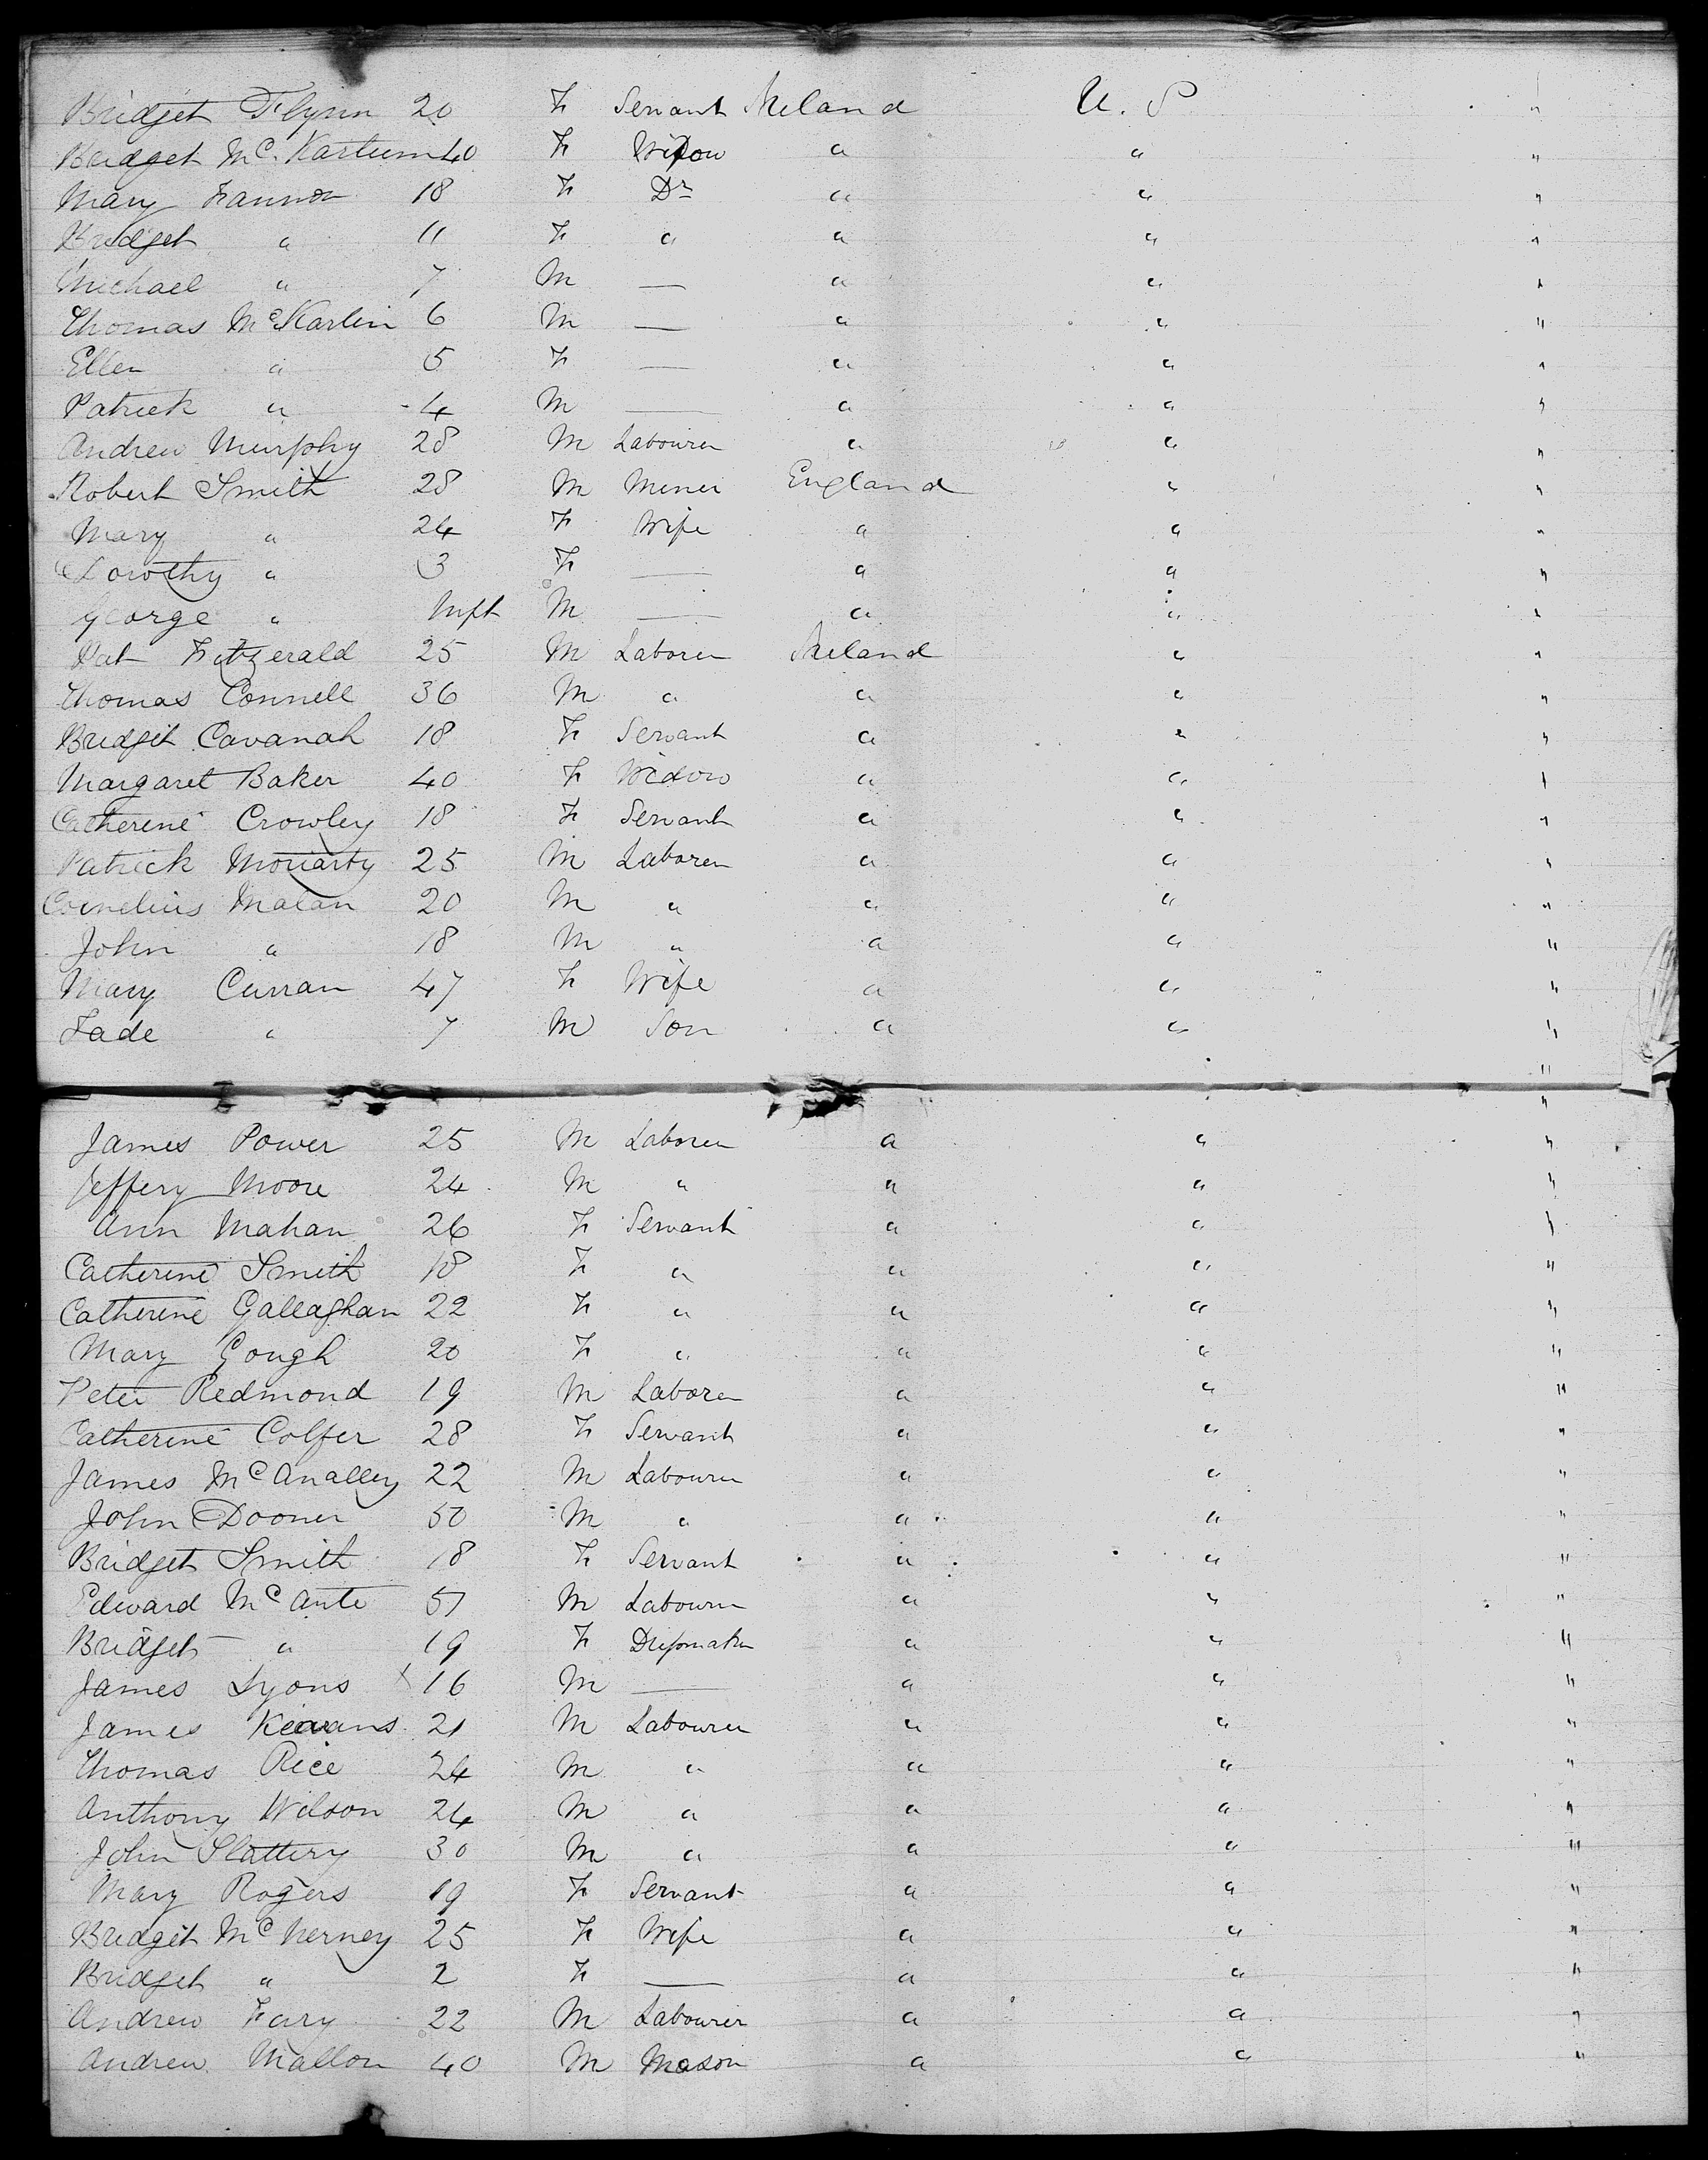 Bridget Flynn 20 F Servant Ireland U. S "
Bridget Mc. Kartum 40 F Widow " " "
Mary Fannon 18 F Dr " " "
Bridget " 11 F " " " "
Michael " 7 M — " " "
Thomas McKarlin 6 M — " " "
Ellen " 5 F — " " "
Patrick " 4 M — " " "
Andrew Murphy 28 M Labourer " " "
Robert Smith 28 M Miner England " "
Mary " 24 F Wife " " "
Dorothy " 3 F — " " "
George " Inft M — " " "
Pat Fitzgerald 25 M Laborer Ireland " "
Thomas Connell 36 M " " " "
Bridget Cavanah 18 F Servant " " "
Margaret Baker 40 F Widow " " "
Catherine Crowley 18 F Servant " " "
Patrick Moriarty 25 M Laborer " " "
Cornelius Malan 20 M " " " "
John " 18 M " " " "
Mary Curran 47 F Wife " " "
Fade " 7 M Son " " "
"
"
James Power 25 M Laborer " " "
Jeffery Moore 24 M " " " "
Ann Mahan 26 F Servant " " "
Catherine Smith 18 F " " " "
Catherine Gallaghan 22 F " " " "
Mary Gough 20 F " " " "
Peter Redmond 19 M Laborer " " "
Catherine Colfer 28 F Servant " " "
James McAnalley 22 M Labourer " " "
John Dooner 50 M " " " "
Bridget Smith 18 F Servant " " "
Edward McAnte 51 M Labourer " " "
Bridget " 19 F Dressmaker " " "
James Lyons x 16 M — " " "
James Keavans 21 M Labourer " " "
Thomas Rice 24 M " " " "
Anthony Wilson 24 M " " " "
John Slattery 30 M " " " "
Mary Rogers 19 F Servant " " "
Bridget McNerney 25 F Wife " " "
Bridget " 2 F — " " "
Andrew Fary 22 M Labourer " " "
Andrew Mallon 40 M Mason " " "